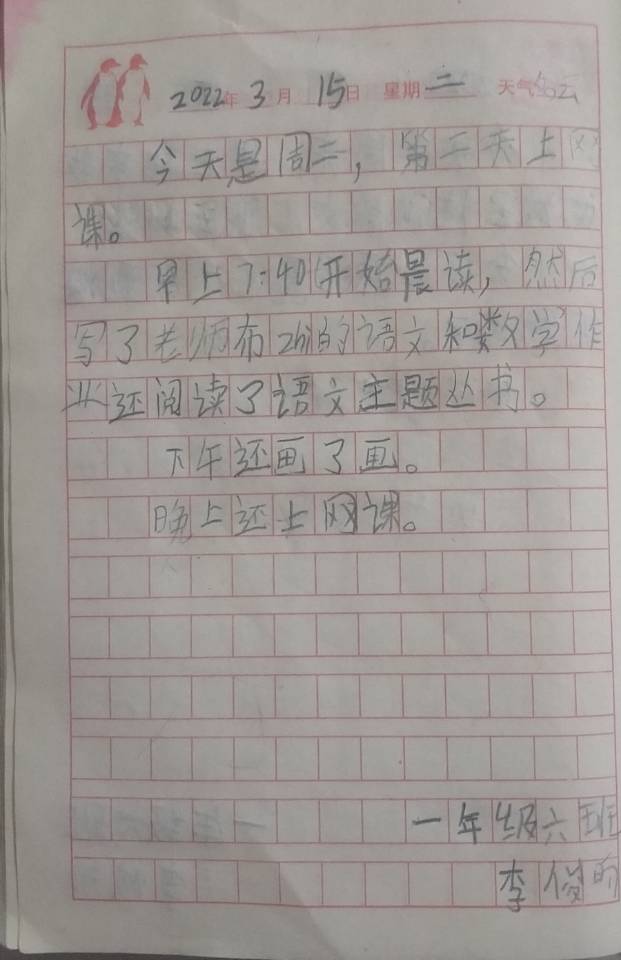 2022年 3月 15日 星期二 天气
今天是周二，第二天上网
课。
早上7:40开始晨读，然后
写了老师布的语文和数学作
业还阅读了语文主题丛书。
下午还画了画。
晚上还上网课。
一年级六班
李俊昀